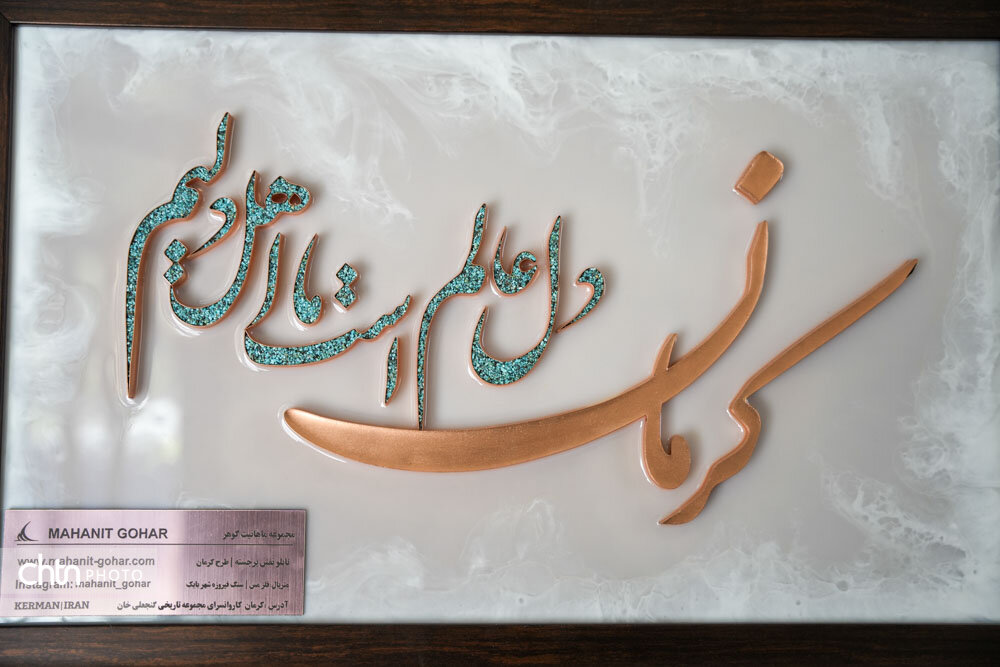 کرمان دل عالم است ما اهل دلیم
MAHANIT GOHAR مجموعه ماهانیت گوهر
www.mahanit-gohar.com تابلو نقش برجسته | طرح کرمان
Instagram: mahanit_gohar متریال: فلز مس | سنگ فیروزه شهر بابک
KERMAN|IRAN آدرس: کرمان کاروانسرای مجموعه تاریخی گنجعلی خان
chtn PHOTO